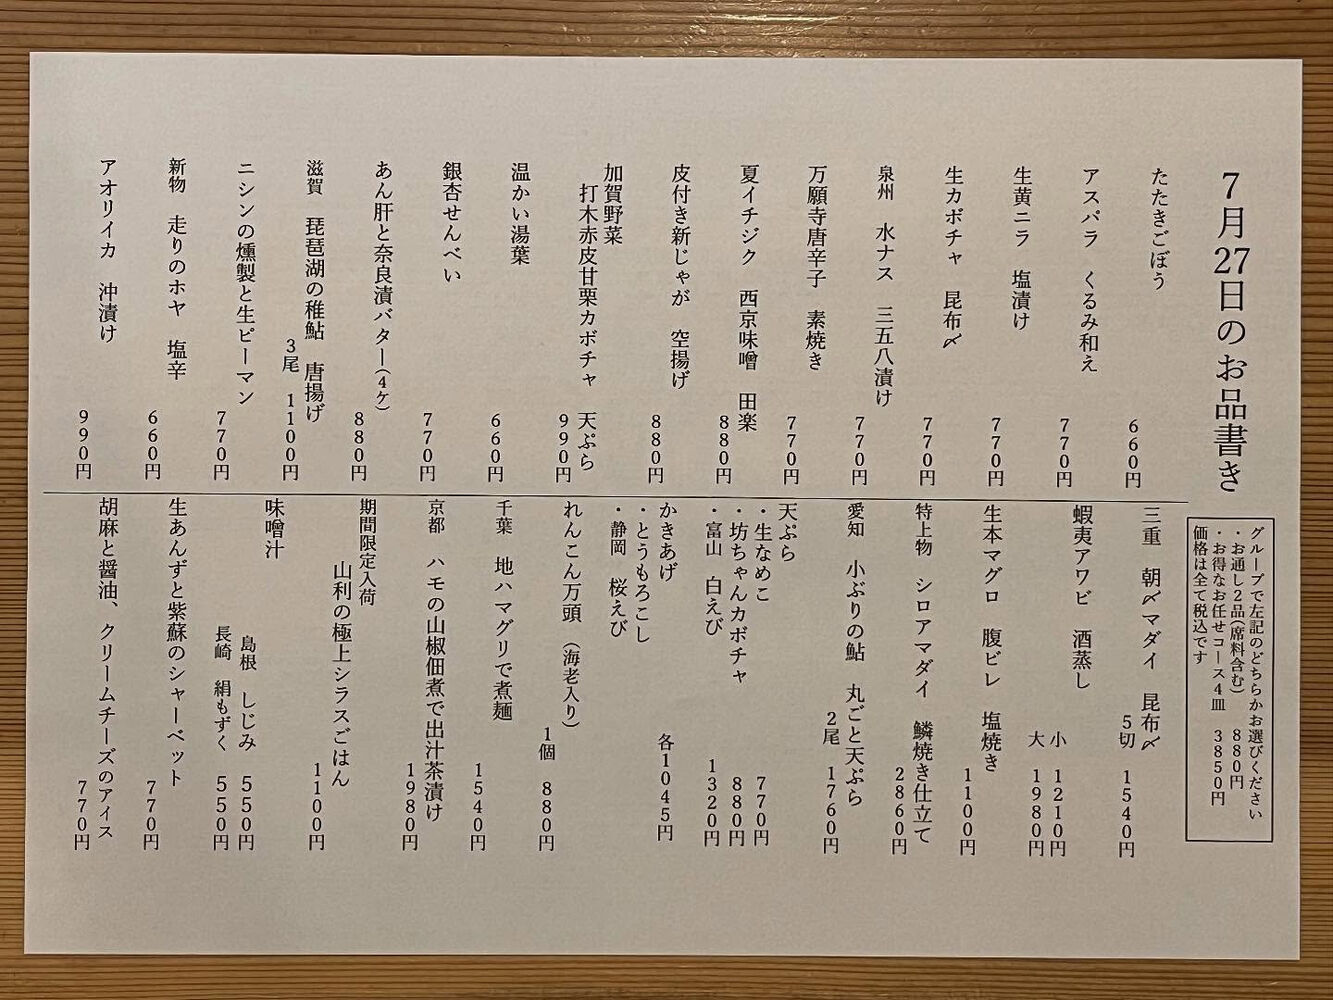 7月27日のお品書き
グループで左記のどちらかお選びください
・お通し2品(席料含む) 880円
・お得なお任せコース4皿 3850円
価格は全て税込です
たたきごぼう
660円
アスパラ くるみ和え
770円
生黄ニラ 塩漬け
770円
生カボチャ 昆布〆
770円
泉州 水ナス 三五八漬け
770円
万願寺唐辛子 素焼き
770円
夏イチジク 西京味噌 田楽
880円
皮付き新じゃが 空揚げ
880円
加賀野菜
打木赤皮甘栗カボチャ 天ぷら
990円
温かい湯葉
660円
銀杏せんべい
770円
あん肝と奈良漬バター(4ケ)
880円
滋賀 琵琶湖の稚鮎 唐揚げ
3尾 1100円
ニシンの燻製と生ピーマン
770円
新物 走りのホヤ 塩辛
660円
アオリイカ 沖漬け
990円
三重 朝〆マダイ 昆布〆
5切 1540円
蝦夷アワビ 酒蒸し
小 1210円
大 1980円
生本マグロ 腹ビレ 塩焼き
1100円
特上物 シロアマダイ 鱗焼き仕立て
2860円
愛知 小ぶりの鮎 丸ごと天ぷら
2尾 1760円
天ぷら
・生なめこ 770円
・坊ちゃんカボチャ 880円
・富山 白えび 1320円
かきあげ
・とうもろこし
・静岡 桜えび
各1045円
れんこん万頭 (海老入り)
1個 880円
千葉 地ハマグリで煮麺
1540円
京都 ハモの山椒佃煮で出汁茶漬け
1980円
期間限定入荷
山利の極上シラスごはん
1100円
味噌汁
島根 しじみ 550円
長崎 絹もずく 550円
生あんずと紫蘇のシャーベット
770円
胡麻と醤油、クリームチーズのアイス
770円